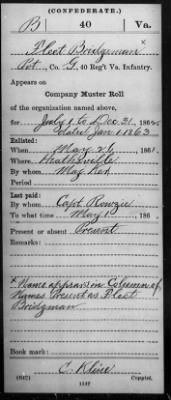 (CONFEDERATE.)
B 40 Va.
Fleet Bridgeman x
Pvt, Co. G, 40 Reg't Va. Infantry.
Appears on
Company Muster Roll
of the organization named above,
for July 1 to Dec 31, 186
dated Jan 1 1863
Enlisted:
When May 26, 1861
Where Heathsville
By whom Maj
Period
Last paid:
By whom Capt Rowzie
To what time May 1, 186
Present or absent Present
Remarks:
x Name appears in Column of
Names Present as Fleet
Bridgman
Book mark:
C. Kline
(642) Copyist.